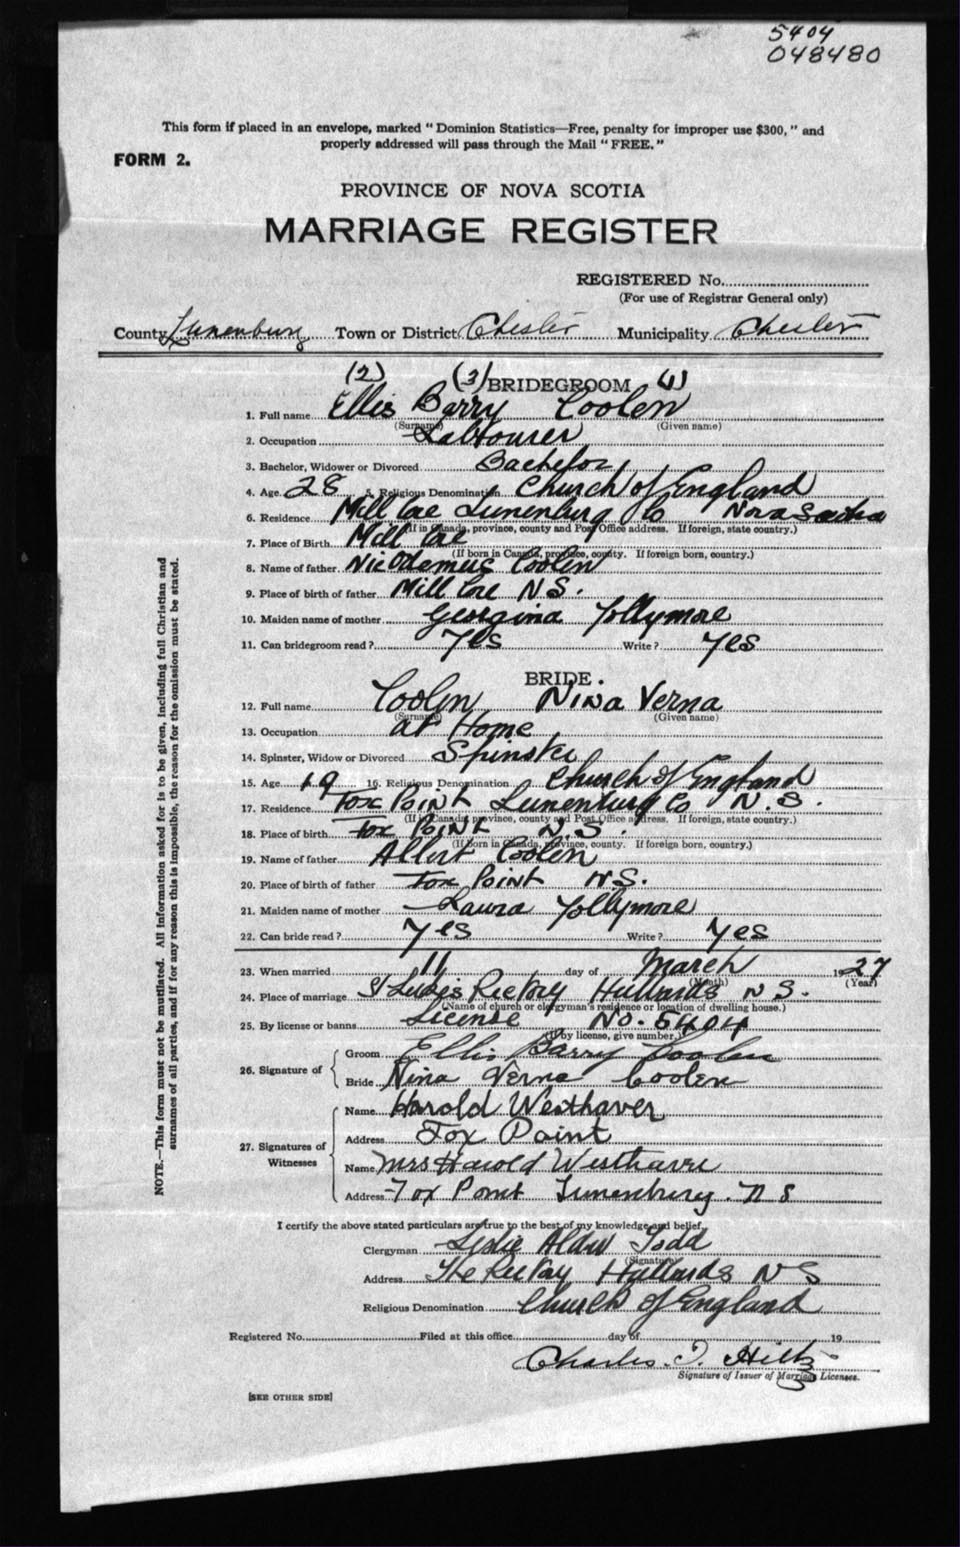 5404
048480
This form if placed in an envelope, marked "Dominion Statistics—Free, penalty for improper use $300," and
properly addressed will pass through the Mail "FREE."
FORM 2.
PROVINCE OF NOVA SCOTIA
MARRIAGE REGISTER
REGISTERED No.
(For use of Registrar General only)
County Lunenburg Town or District Chester Municipality Chester
(2) (3) BRIDEGROOM (1)
1. Full name Ellis Barry Coolen
(Surname) (Given name)
2. Occupation Labourer
3. Bachelor, Widower or Divorced Bachelor
4. Age 28 5. Religious Denomination Church of England
6. Residence Mill Cove Lunenburg Co Nova Scotia
(If in Canada, province, county and Post Office address. If foreign, state country.)
7. Place of Birth Mill Cove
(If born in Canada, province, county. If foreign born, country.)
8. Name of father Nicodemus Coolen
9. Place of birth of father Mill Cove N S.
10. Maiden name of mother Georgina Jollymore
11. Can bridegroom read? Yes Write? Yes
BRIDE.
12. Full name Coolen Nina Verna
(Surname) (Given name)
13. Occupation at Home
14. Spinster, Widow or Divorced Spinster
15. Age 19 16. Religious Denomination Church of England
17. Residence Fox Point Lunenburg Co N.S.
(If in Canada, province, county and Post Office address. If foreign, state country.)
18. Place of birth Fox Point N.S.
(If born in Canada, province, county. If foreign born, country.)
19. Name of father Albert Coolen
20. Place of birth of father Fox Point N.S.
21. Maiden name of mother Laura Jollymore
22. Can bride read? Yes Write? Yes
23. When married 11 day of March 1927
(Month) (Year)
24. Place of marriage St Lukes Rectory Hubbards N S.
(Name of church or clergyman's residence or location of dwelling house.)
25. By license or banns License No. 5404
(If by license, give number.)
26. Signature of
Groom Ellis Barry Coolen
Bride Nina Verna Coolen
27. Signatures of Witnesses
Name Harold Westhaver
Address Fox Point
Name Mrs Harold Westhaver
Address Fox Point Lunenburg. N S
I certify the above stated particulars are true to the best of my knowledge and belief.
Clergyman Leslie Todd
(Signature)
Address The Rectory Hubbards N S
Religious Denomination Church of England
Registered No. Filed at this office day of 19
Charles. Hiltz
Signature of Issuer of Marriage Licenses.
[SEE OTHER SIDE]
NOTE.—This form must not be mutilated. All information asked for is to be given, including full Christian and
surnames of all parties, and if for any reason this is impossible, the reason for the omission must be stated.